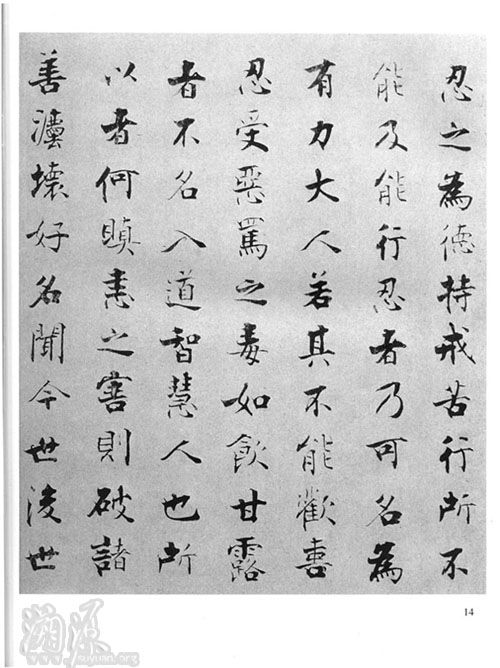 忍之為德持戒苦行所不
能及能行忍者乃可名為
有力大人若其不能歡喜
忍受惡罵之毒如飲甘露
者不名入道智慧人也所
以者何瞋恚之害則破諸
善灋壞好名聞今世後世
14
溯源
www.suyuan.org